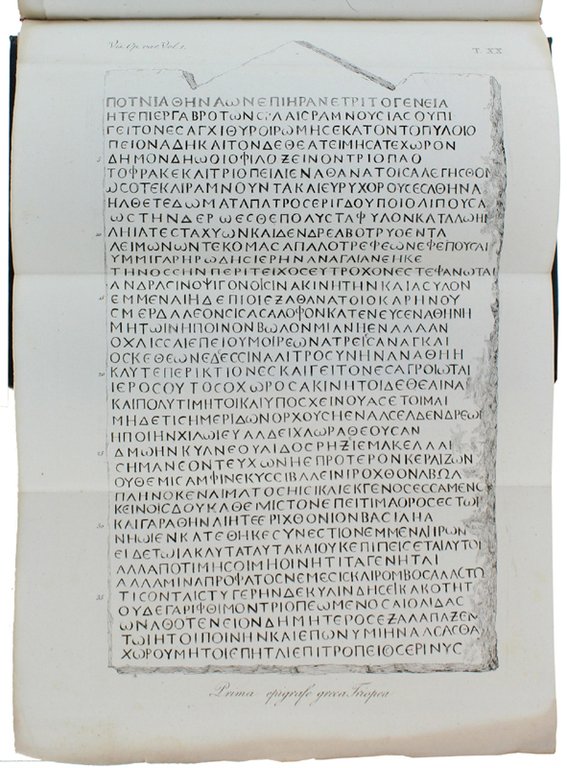 Vis. Op. var. Vol. 1.
T. XX
ΠΟΤΝΙΑΘΗΝΑΩΝΕΠΙΗΡΑΝΕΤΡΙΤΟΓΕΝΕΙΑ
ΗΤΕΠΙΕΡΓΑΒΡΟΤΩΝΟΡΑΑΙϹΡΑΜΝΟΥϹΙΑϹΟΥΠΙ
ΓΕΙΤΟΝΕϹΑΓΧΙΘΥΡΟΙΡΩΜΗϹΕΚΑΤΟΝΤΟΠΥΛΟΙΟ
ΠΕΙΟΝΑΔΗΚΑΙΤΟΝΔΕΘΕΑΤΕΙΜΗϹΑΤΕΧΩΡΟΝ
5 ΔΗΜΟΝΔΗΩΟΙΟΦΙΛΟΞΕΙΝΟΝΤΡΙΟΠΑΟ
ΤΟΦΡΑΚΕΚΑΙΤΡΙΟΠΕΙΑΙΕΝΑΘΑΝΑΤΟΙϹΑΛΕΓΗϹΘΟΝ
ΩϹΟΤΕΚΑΙΡΑΜΝΟΥΝΤΑΚΑΙΕΥΡΥΧΟΡΟΥϹΕϹΑΘΗΝΑ
ΗΛΘΕΤΕΔΩΜΑΤΑΠΑΤΡΟϹΕΡΙΓΔΟΥΠΟΙΟΛΙΠΟΥϹΑ
ΩϹΤΗΝΔΕΡΩΕϹΘΕΠΟΛΥϹΤΑΦΥΛΟΝΚΑΤΑΛΩΗΝ
10 ΛΗΙΑΤΕϹΤΑΧΥΩΝΚΑΙΔΕΝΔΡΕΑΒΟΤΡΥΟΕΝΤΑ
ΛΕΙΜΩΝΩΝΤΕΚΟΜΑϹΑΠΑΛΟΤΡΕΦΕΩΝΕΦΕΠΟΥϹΑΙ
ΥΜΜΙΓΑΡΗΡΩΔΗϹΙΕΡΗΝΑΝΑΓΑΙΑΝΕΗΚΕ
ΤΗΝΟϹϹΗΝΠΕΡΙΤΕΙΧΟϹΕΥΤΡΟΧΟΝΕϹΤΕΦΑΝΩΤΑΙ
ΑΝΔΡΑϹΙΝΟΨΙΓΟΝΟΙϹΙΝΑΚΙΝΗΤΗΝΚΑΙΑϹΥΛΟΝ
15 ΕΜΜΕΝΑΙΗΔΕΠΙΟΙΕΞΑΘΑΝΑΤΟΙΟΚΑΡΗΝΟΥ
ϹΜΕΡΔΑΛΕΟΝϹΙϹΑϹΑΛΟΦΟΝΚΑΤΕΝΕΥϹΕΝΑΘΗΝΗ
ΜΗΤΩΙΝΗΠΟΙΝΟΝΒΩΛΟΝΜΙΑΝΗΕΝΑΛΑΑΝ
ΟΧΛΙϹϹΑΙΕΠΕΙΟΥΜΟΙΡΕΩΝΑΤΡΕΙϹΑΝΑΓΚΑΙ
ΟϹΚΕΘΕΩΝΕΔΕϹϹΙΝΑΛΙΤΡΟϹΥΝΗΝΑΝΑΘΗΗ
20 ΚΛΥΤΕΠΕΡΙΚΤΙΟΝΕϹΚΑΙΓΕΙΤΟΝΕϹΑΓΡΟΙΩΤΑΙ
ΙΕΡΟϹΟΥΤΟϹΟΧΩΡΟϹΑΚΙΝΗΤΟΙΔΕΘΕΑΙΝΑΙ
ΚΑΙΠΟΛΥΤΙΜΗΤΟΙΚΑΙΥΠΟϹΧΕΙΝΟΥΑϹΕΤΟΙΜΑΙ
ΜΗΔΕΤΙϹΗΜΕΡΙΔΩΝΟΡΧΟΥϹΗΕΝΑΛϹΕΑΔΕΝΔΡΕΩΝ
ΗΠΟΙΗΝΧΙΛΩΙΕΥΑΛΔΕΙΧΛΩΡΑΘΕΟΥϹΑΝ
25 ΔΜΩΗΝΚΥΑΝΕΟΥΑΙΔΟϹΡΗΞΙΕΜΑΚΕΛΛΑΝ
ϹΗΜΑΝΕΟΝΤΕΥΧΩΝΗΕΠΡΟΤΕΡΟΝΚΕΡΑΙΖΩΝ
ΟΥΘΕΜΙϹΑΜΦΙΝΕΚΥϹϹΙΒΑΛΕΙΝΙΡΟΧΘΟΝΑΒΩΛΑ
ΠΛΗΝΟΚΕΝΑΙΜΑΤΟϹΗΙϹΙΚΑΙΕΚΓΕΝΟϹΕϹϹΑΜΕΝΟ
ΚΕΙΝΟΙϹΔΟΥΚΑΘΕΜΙϹΤΟΝΕΠΕΙΤΙΜΑΟΡΟϹΕϹΤΩΡ
30 ΚΑΙΓΑΡΑΘΗΝΑΙΗΤΕΕΡΙΧΘΟΝΙΟΝΒΑϹΙΛΗΑ
ΝΗΩΙΕΝΚΑΤΕΘΗΚΕϹΥΝΕϹΤΙΟΝΕΜΜΕΝΑΙΙΡΩΝ
ΕΙΔΕΤΩΙΑΚΛΥΤΑΤΑΥΤΑΚΑΙΟΥΚΕΠΙΠΕΙϹΕΤΑΙΑΥΤΟΙ
ΑΛΛΑΠΟΤΙΜΗϹΟΙΜΗΟΙΝΗΤΙΤΑΓΕΝΗΤΑΙ
ΑΛΛΑΜΙΝΑΠΡΟΦΑΤΟϹΝΕΜΕϹΙϹΚΑΙΡΟΜΒΟϹΑΛΑϹΤΩ
35 ΤΙϹΟΝΤΑΙϹΤΥΓΕΡΗΝΔΕΚΥΛΙΝΔΗϹΕΙΚΑΚΟΤΗΤ
ΟΥΔΕΓΑΡΙΦΘΙΜΟΝΤΡΙΟΠΕΩΜΕΝΟϹΑΙΟΛΙΔΑϹ
ΩΝΑΘΟΤΕΝΕΙΟΝΔΗΜΗΤΕΡΟϹΕΞΑΛΑΠΑΞΕΝ
ΤΩΙΗΤΟΙΠΟΙΝΗΝΚΑΙΕΠΩΝΥΜΙΗΝΑΛΕΑϹΘΑ
ΧΩΡΟΥΜΗΤΟΙΕΠΗΤΑΙΕΠΙΤΡΟΠΕΙΟϹΕΡΙΝΥϹ
Prima epigrafe greca Triopea